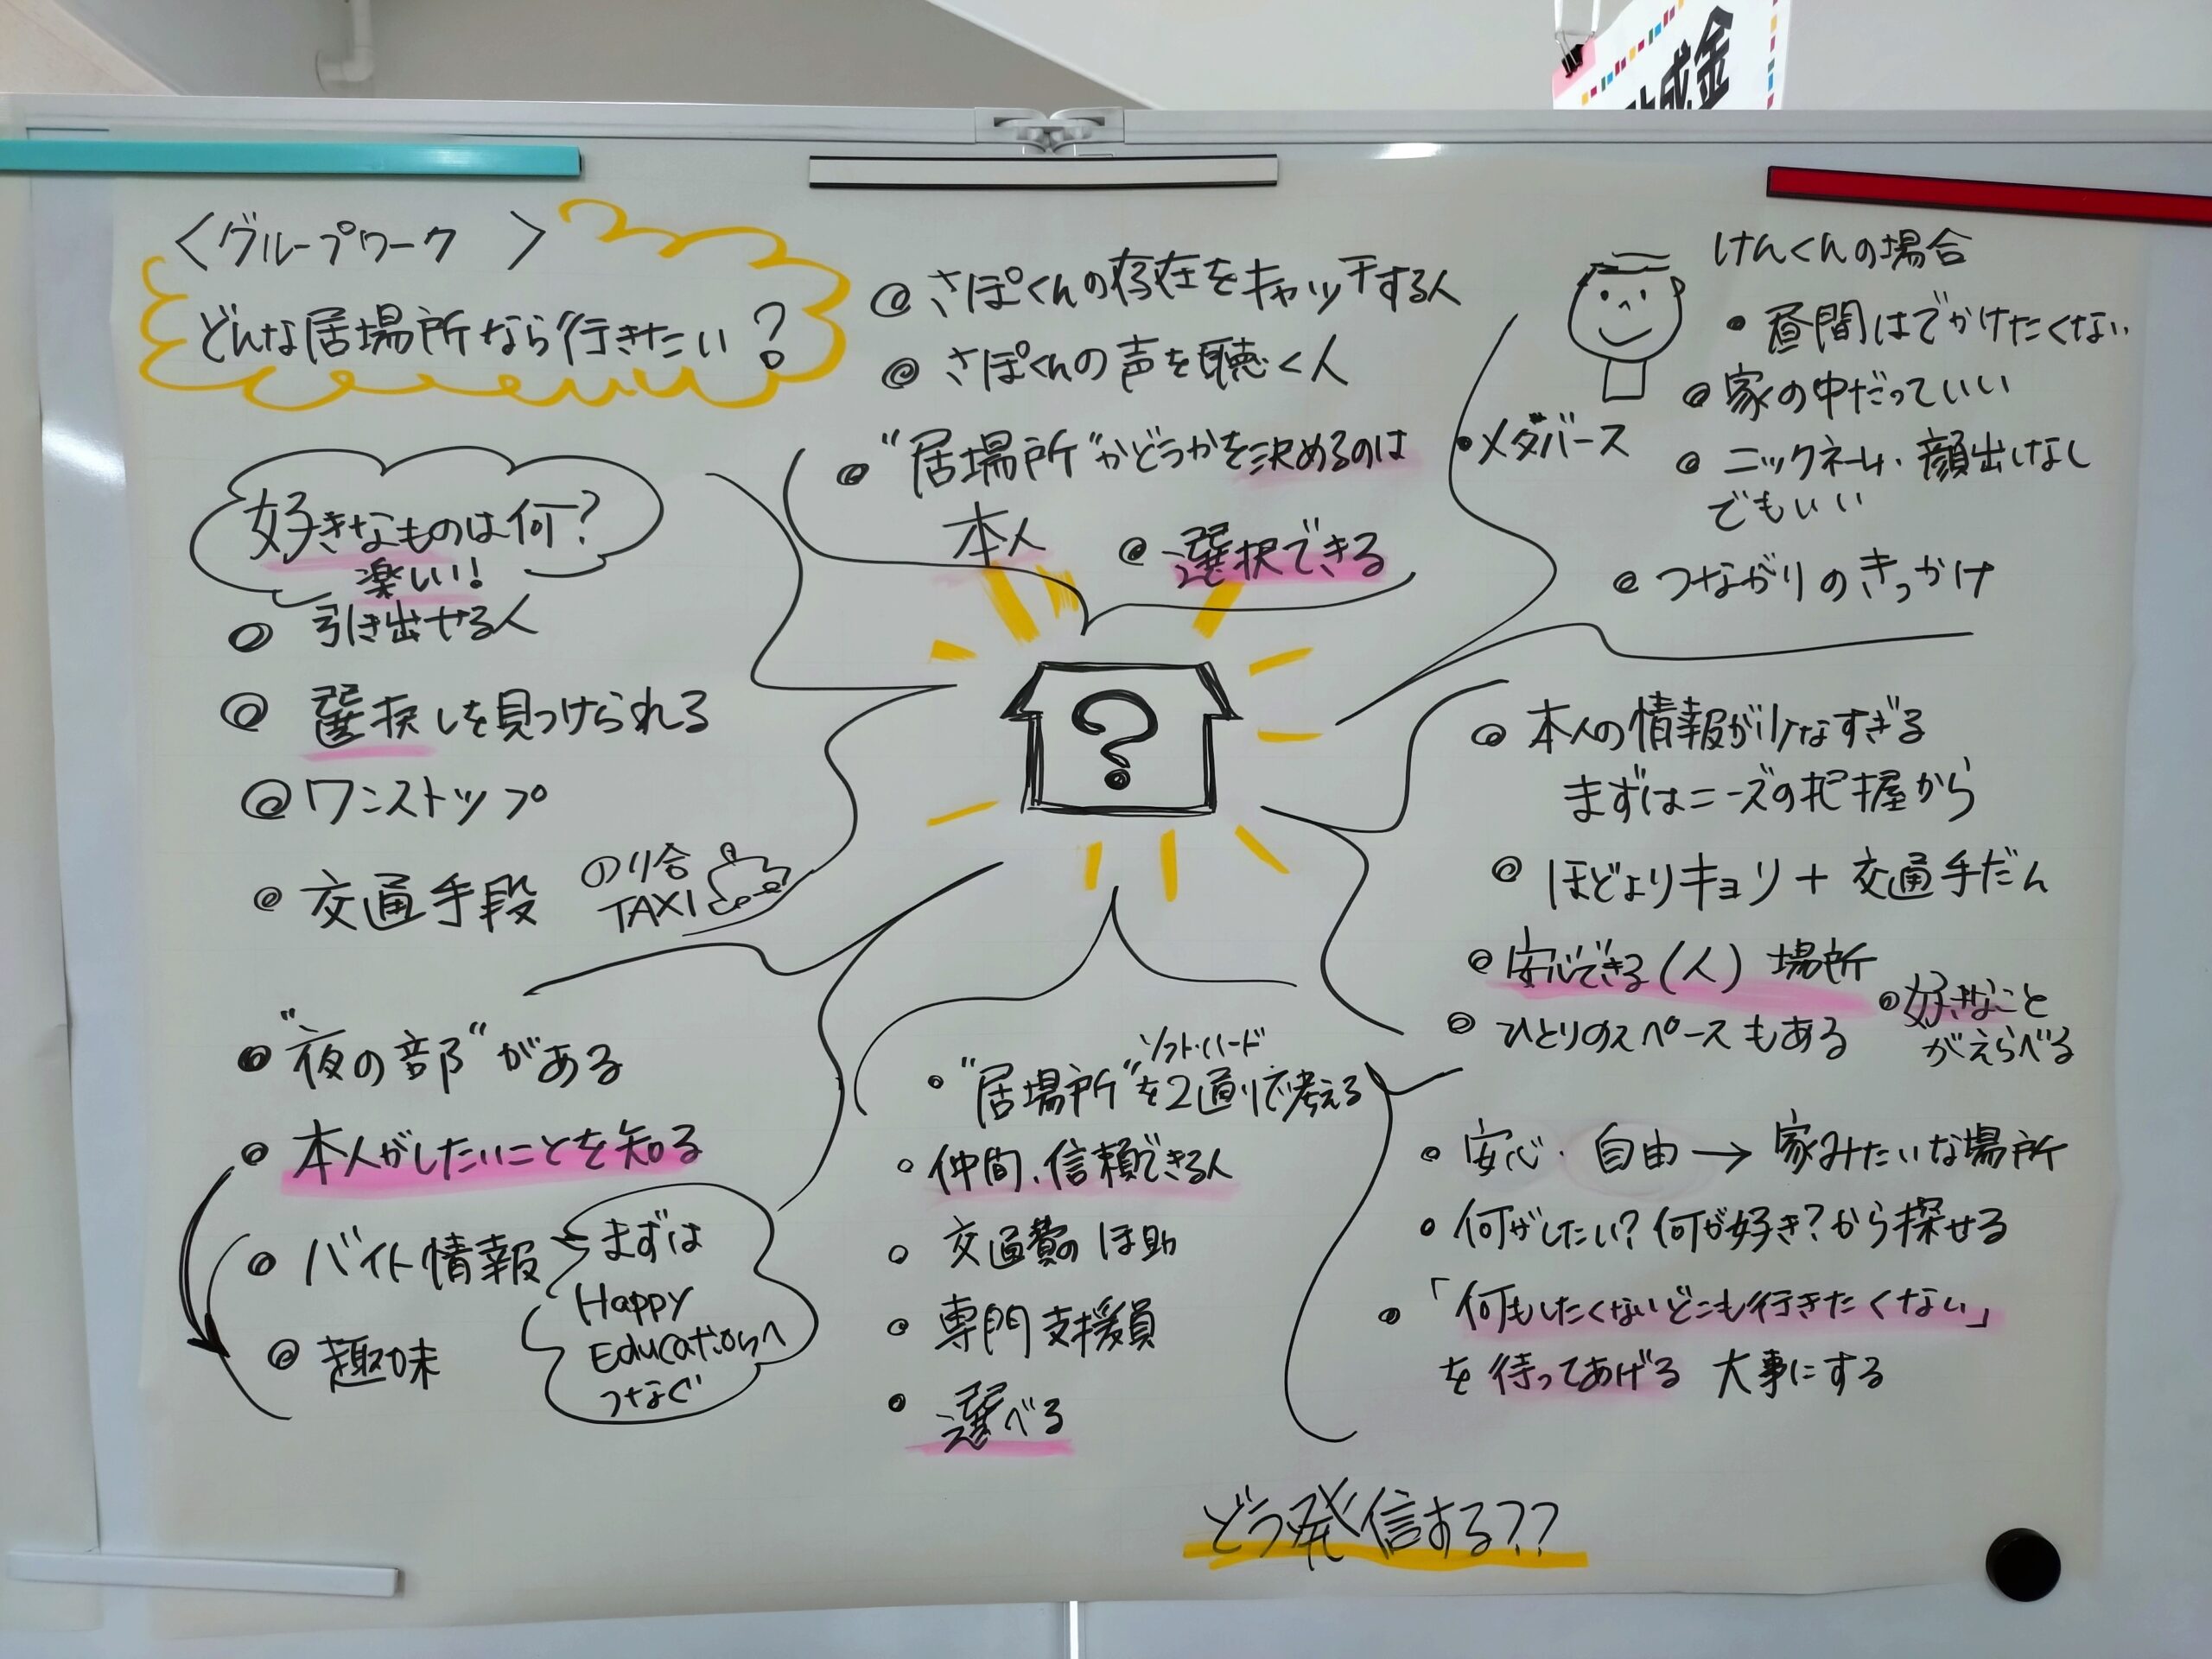 助成金
〈グループワーク〉
どんな居場所なら行きたい?
好きなものは何?
楽しい!
引き出せる人
選択しを見つけられる
ワンストップ
交通手段
のり合
TAXI
さぽくんの存在をキャッチする人
さぽくんの声を聴く人
"居場所"かどうかを決めるのは
本人
選択できる
けんくんの場合
昼間はでかけたくない
家の中だっていい
メタバース
ニックネーム・顔出しなし
でもいい
つながりのきっかけ
?
本人の情報が少なすぎる
まずはニーズの把握から
ほどよりキョリ+交通手だん
安心できる(人)場所
好きなこと
がえらべる
ひとりのスペースもある
"夜の部"がある
本人がしたいことを知る
バイト情報
趣味
まずは
Happy
Educationへ
つなぐ
ソフト・ハード
"居場所"を2通りで考える
仲間、信頼できる人
交通費のほ助
専門支援員
選べる
安心・自由→家みたいな場所
何がしたい?何が好き?から探せる
「何もしたくないどこも行きたくない」
を待ってあげる 大事にする
どう発信する??